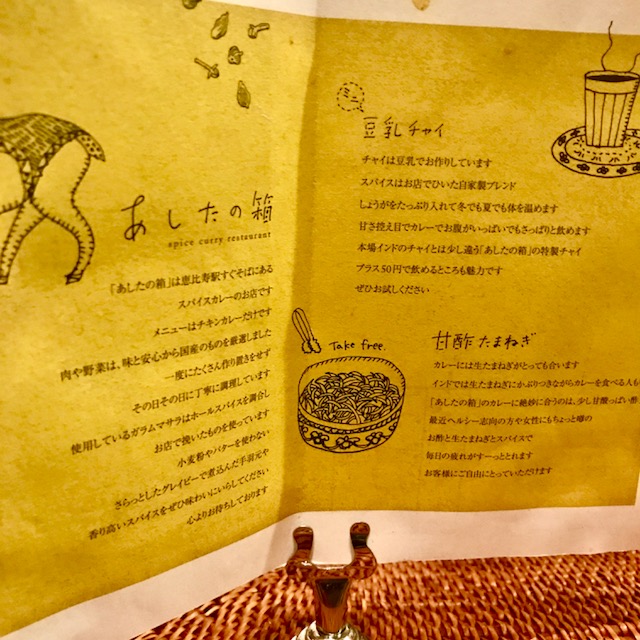 あしたの箱
spice curry restaurant
「あしたの箱」は恵比寿駅すぐそばにある
スパイスカレーのお店です
メニューはチキンカレーだけです
肉や野菜は、味と安心から国産のものを厳選しました
一度にたくさん作り置きをせず
その日その日に丁寧に調理しています
使用しているガラムマサラはホールスパイスを調合し
お店で挽いたものを使っています
小麦粉やバターを使わない
さらっとしたグレイビーで煮込んだ手羽元や
香り高いスパイスをぜひ味わいにいらしてください
心よりお待ちしております
豆乳チャイ
チャイは豆乳でお作りしています
スパイスはお店でひいた自家製ブレンド
しょうがをたっぷり入れて冬でも夏でも体を温めます
甘さ控え目でカレーでお腹がいっぱいでもさっぱりと飲めます
本場インドのチャイとは少し違う「あしたの箱」の特製チャイ
プラス50円で飲めるところも魅力です
ぜひお試しください
Take free.
甘酢たまねぎ
カレーには生たまねぎがとっても合います
インドでは生たまねぎにかぶりつきながらカレーを食べる人も
「あしたの箱」のカレーに絶妙に合うのは、少し甘酸っぱい酢
最近ヘルシー志向の方や女性にもちょっと噂の
お酢と生たまねぎとスパイスで
毎日の疲れがすーっととれます
お客様にご自由にとっていただけます